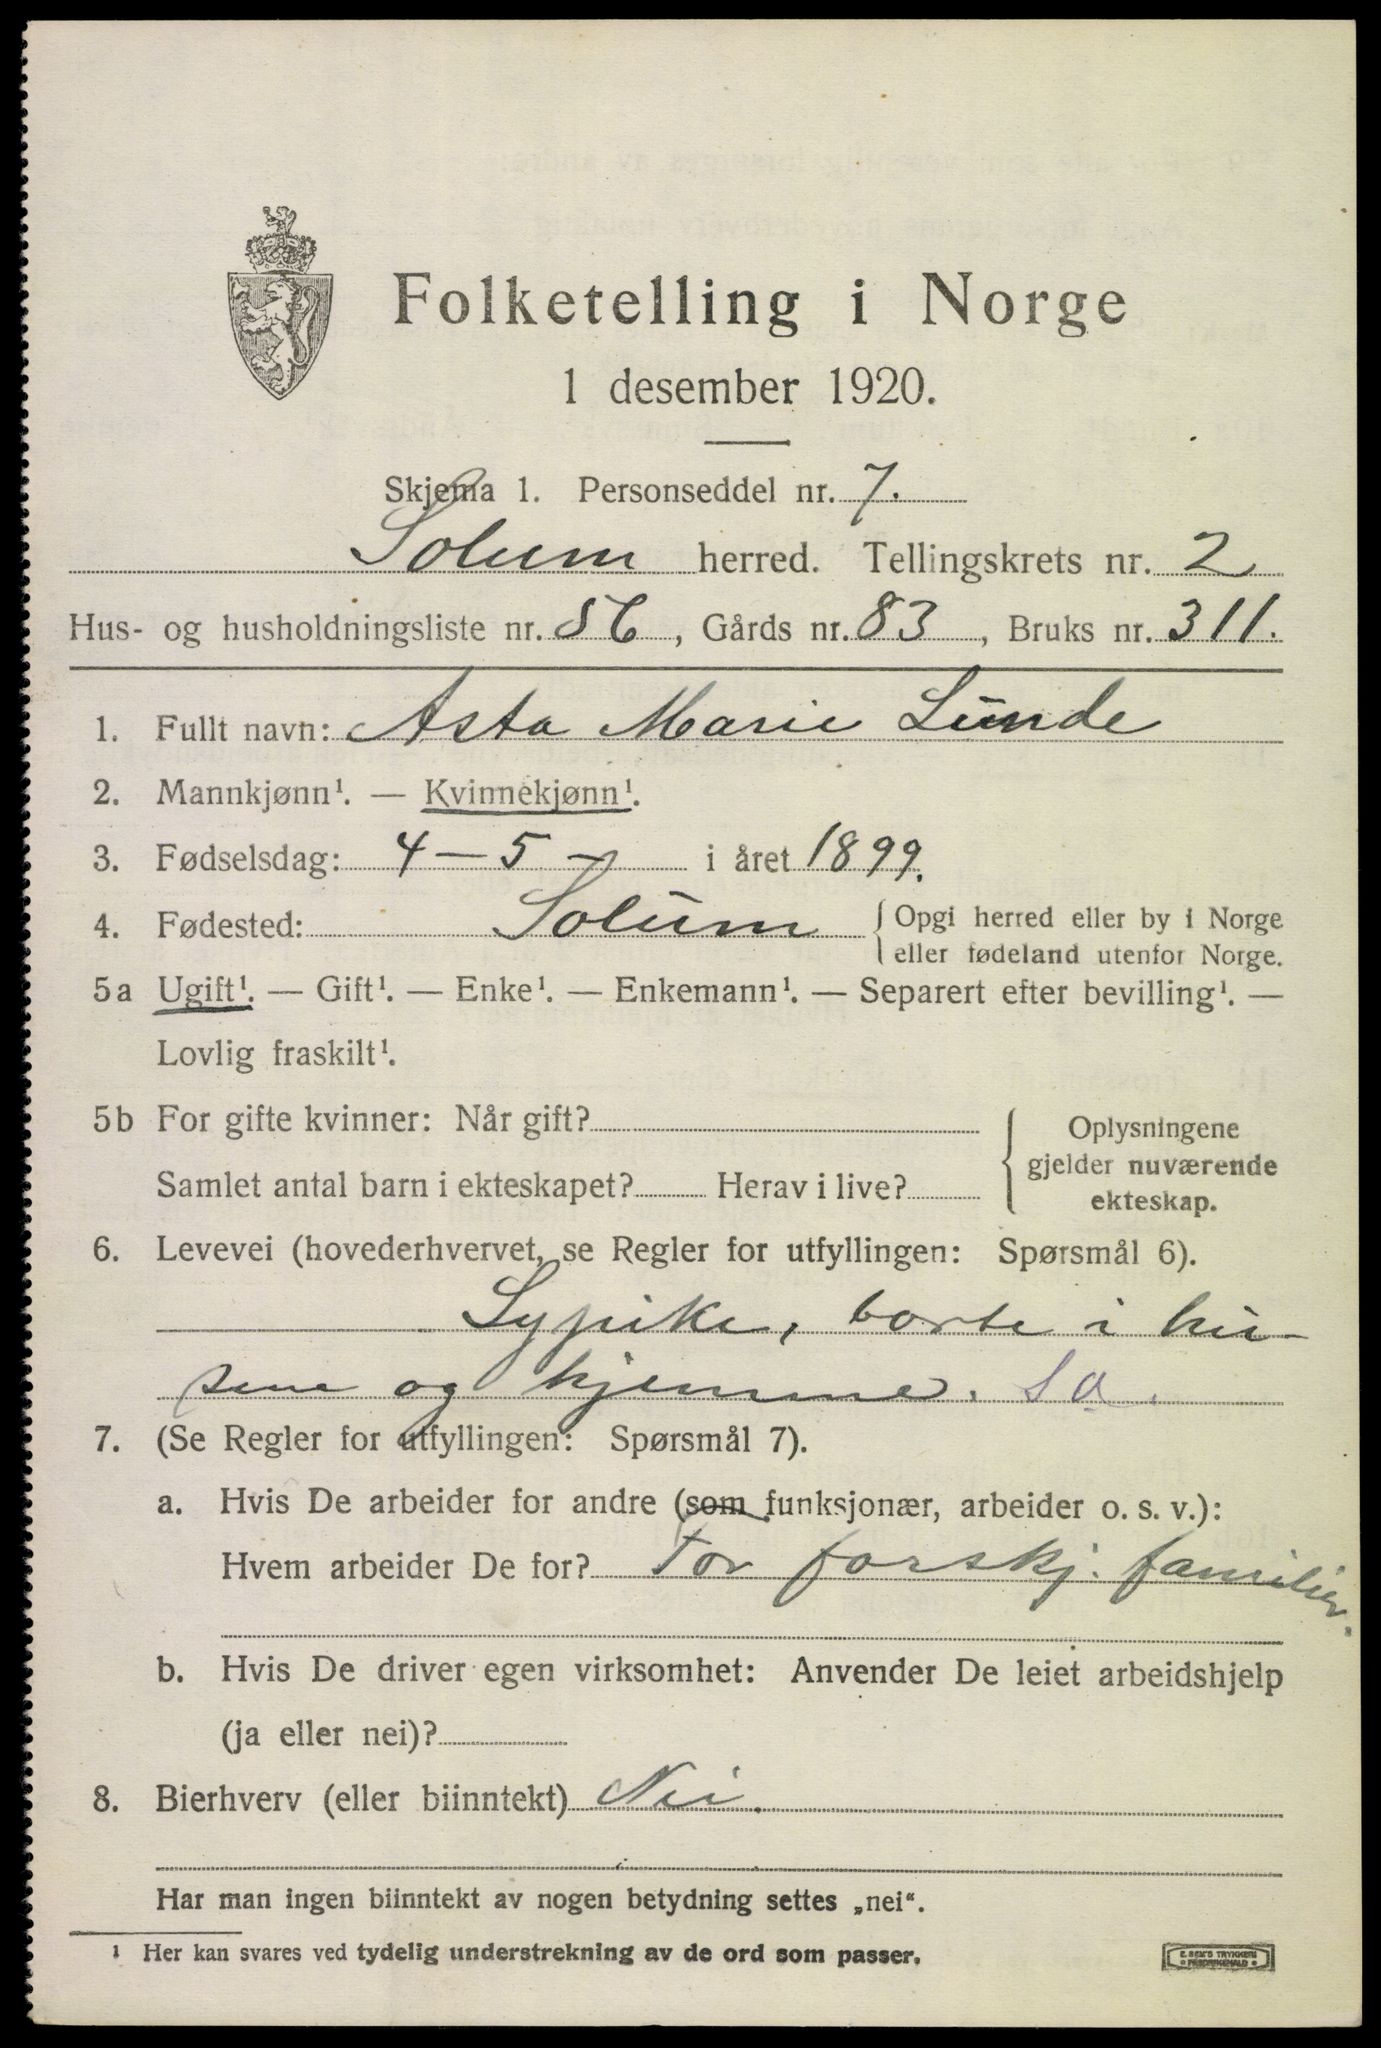 Folketelling i Norge
1 desember 1920.
Skjema 1. Personseddel nr. 7.
Solum herred. Tellingskrets nr. 2
Hus- og husholdningsliste nr. 56, Gårds nr. 83, Bruks nr. 311.
1. Fullt navn: Asta Marie Lunde
2. Mannkjønn¹. — Kvinnekjønn¹.
3. Fødselsdag: 4 – 5 – i året 1899.
4. Fødested: Solum { Opgi herred eller by i Norge
eller fødeland utenfor Norge.
5a Ugift¹. — Gift¹. — Enke¹. — Enkemann¹. — Separert efter bevilling¹. —
Lovlig fraskilt¹.
5b For gifte kvinner: Når gift?
Samlet antal barn i ekteskapet? Herav i live?
Oplysningene
gjelder nuværende
ekteskap.
6. Levevei (hovederhvervet, se Regler for utfyllingen: Spørsmål 6).
Sypike, borte i hu-
sene og hjemme.
7. (Se Regler for utfyllingen: Spørsmål 7).
a. Hvis De arbeider for andre (som funksjonær, arbeider o. s. v.):
Hvem arbeider De for? For forskj. familier.
b. Hvis De driver egen virksomhet: Anvender De leiet arbeidshjelp
(ja eller nei)?
8. Bierhverv (eller biinntekt) Nei.
Har man ingen biinntekt av nogen betydning settes „nei“.
¹ Her kan svares ved tydelig understrekning av de ord som passer.
E. SEM'S TRYKKERI
FREDRIKSHALD